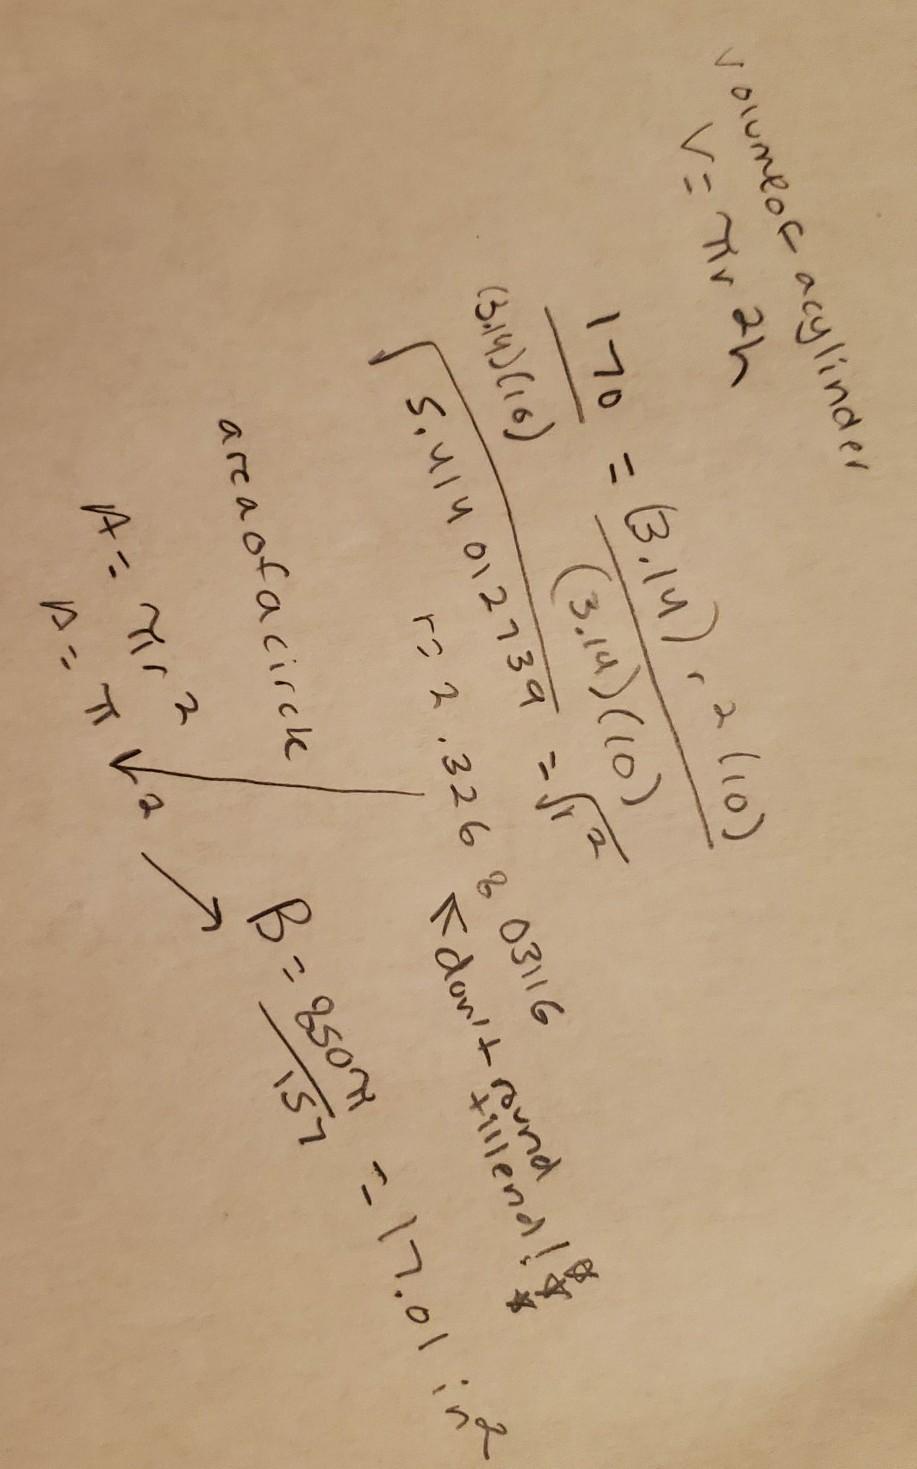 volume of a cylinder
V = πr2h
170 = (3.14)r2(10)
(3.14)(10) (3.14)(10)
√5.414012739 = √r2
r = 2.326803116
← don't round
till end!
area of a circle
A = πr2
A = π r2 → B = 850π = 17.01 in2
157